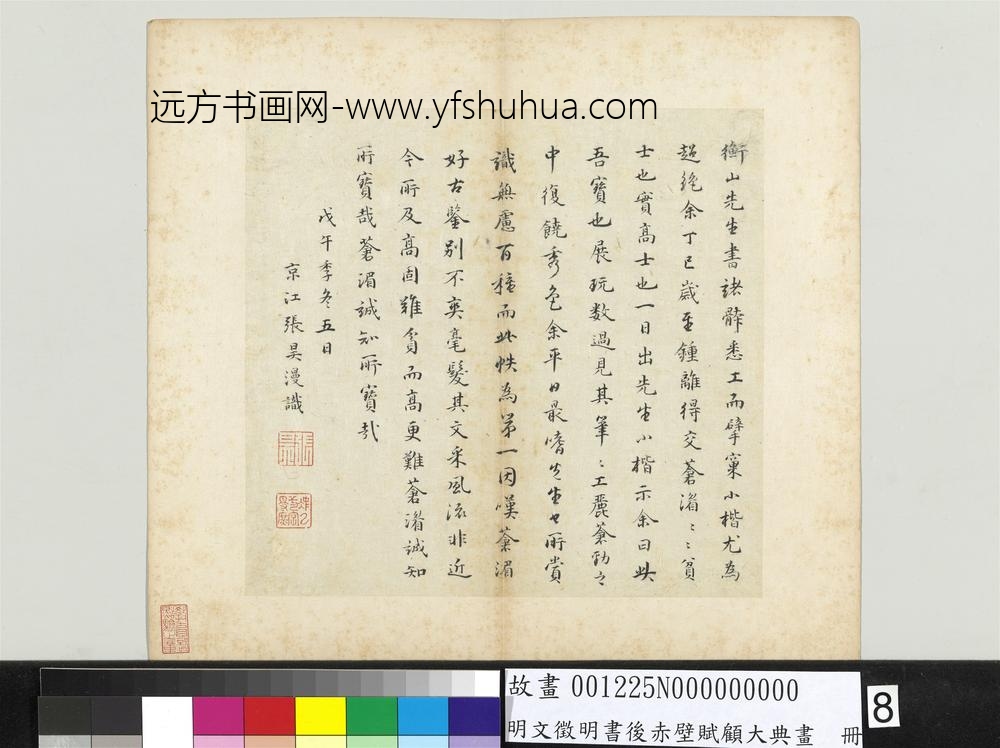 远方书画网-www.yfshuhua.com
衡山先生書諸體悉工而擘窠小楷尤為
超絶余丁巳歲至鍾離得交蒼湄〻貧
士也實高士也一日出先生小楷示余曰此
吾寶也展玩数過見其筆〻工麗蒼勁之
中復饒秀色余平日最嗜先生也所賞
識無慮百種而此帙為第一因嘆蒼湄
好古鑒别不爽毫髮其文采風流非近
今所及高固難貧而高更難蒼湄誠知
所寶哉蒼湄誠知所寶哉
戊午季冬五日
京江張昊漫識
故畫 001225N000000000
明文徵明書後赤壁賦顧大典畫 冊
8